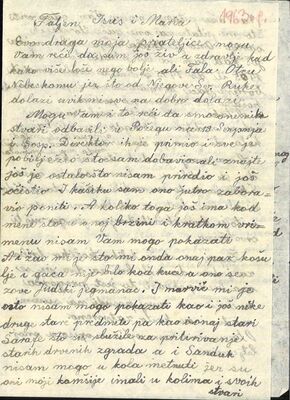 1963 g.
Faljen Isus i Marija
Evo draga moja prijateljice mogu
Vam reć da sam još živ a zdravlje kad
kako više loše nego bolje ali Fala Ocu
Nebeskomu jer što od Njegove Ruke
dolazi uvik mi sve na dobro dolazi
Mogu Vam i to reći da smo one
stvari odbacili u Požegu na 13
Gosp. Direktor ih je primio i sve je
pobilježio što sam dobavio ali znajte
još je ostalo što nisam priredio i još
očistio I kašiku sam ono jutro zabora-
vio peniti.. A koliko toga još ima kod
mene što u onoj brzini i kratkom vri-
menu nisam Vam mogo pokazati
Ai žao mi je što mi onda onaj par košu-
lje i gaća nije bilo kod kuće a ono se
zove Judski pegmanac. I maroič mi je
osto nisam mogo pokazati kao i još nike
druge stare predmete pa kao i onaj stari
Saraf što su služile na pritvrivanje
starih drvenih zgrada a i Sanduk
nisam mogo u kola metnuti jer su
oni moji komšije imali u kolima i svoih
stvari